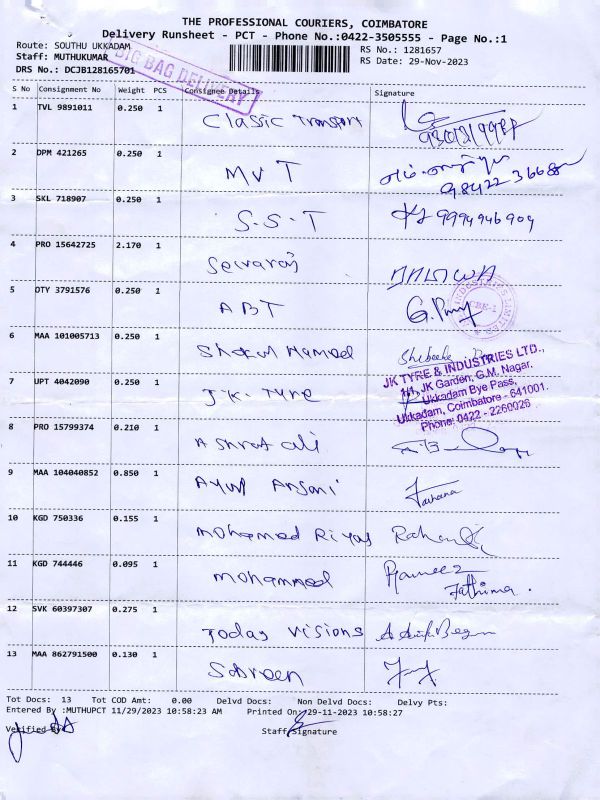 THE PROFESSIONAL COURIERS, COIMBATORE
Delivery Runsheet - PCT - Phone No.:0422-3505555 - Page No.:1
Route: SOUTHU UKKADAM
RS No.: 1281657
Staff: MUTHUKUMAR
RS Date: 29-Nov-2023
DRS No.: DCJB128165701
BIG BAG DELIVERY
S No Consignment No Weight PCS Consignee Details Signature
1 TVL 9891011 0.250 1 Classic Transport
2 DPM 421265 0.250 1 MVT
98422 36688
3 SKL 718907 0.250 1 S.S.T 9994946909
4 PRO 15642725 2.170 1 Selvaraj
5 OTY 3791576 0.250 1 ABT
6 MAA 101005713 0.250 1 Shakul Hameed
7 UPT 4042090 0.250 1 J.K. Tyre
JK TYRE & INDUSTRIES LTD.,
1/1, JK Garden, G.M. Nagar,
Ukkadam Bye Pass,
Ukkadam, Coimbatore - 641001.
Phone: 0422 - 2260026
8 PRO 15799374 0.210 1 Ashraf ali
9 MAA 104040852 0.850 1 Ayub Ansari Farhana
10 KGD 750336 0.155 1 mohamed Riyas
11 KGD 744446 0.095 1 mohammed Rameez
Fathima.
12 SVK 60397307 0.275 1 Today Visions
13 MAA 862791500 0.130 1 Sabreen
Tot Docs: 13 Tot COD Amt: 0.00 Delvd Docs: Non Delvd Docs: Delvy Pts:
Entered By :MUTHUPCT 11/29/2023 10:58:23 AM Printed On: 29-11-2023 10:58:27
Verified By
Staff Signature